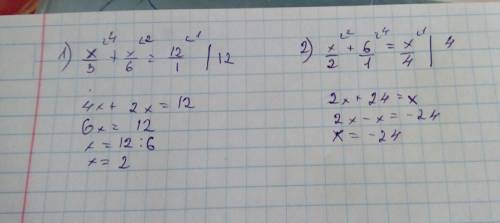 1) x/3 ⁴ + x/6 ² = 12/1 ¹ | 12
4x + 2x = 12
6x = 12
x = 12 : 6
x = 2
2) x/2 ² + 6/1 ⁴ = x/4 ¹ | 4
2x + 24 = x
2x - x = -24
x = -24